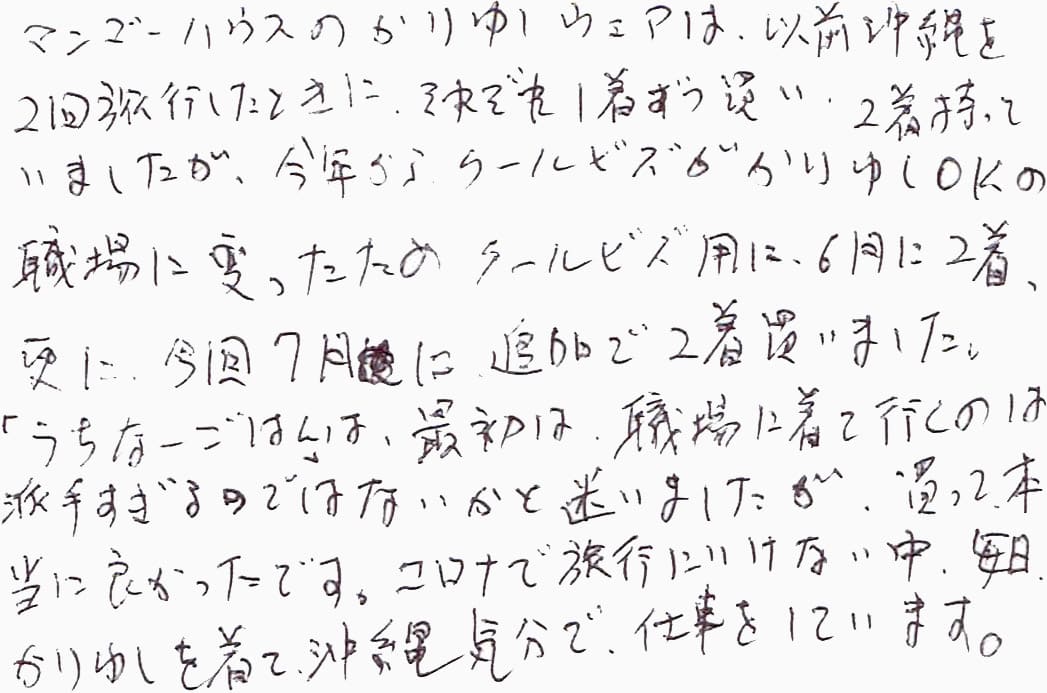 マンゴーハウスのかりゆしウェアは、以前沖縄を
2回旅行したときに、それぞれ1着ずつ買い、2着持って
いましたが、今年からクールビズがかりゆしOKの
職場に変ったためクールビズ用に、6月に2着、
更に、今回7月に追加で2着買いました。
「うちなーごはん」は、最初は、職場に着て行くのは
派手すぎるのではないかと迷いましたが、買って本
当に良かったです。コロナで旅行にいけない中、毎日、
かりゆしを着て、沖縄気分で、仕事をしています。